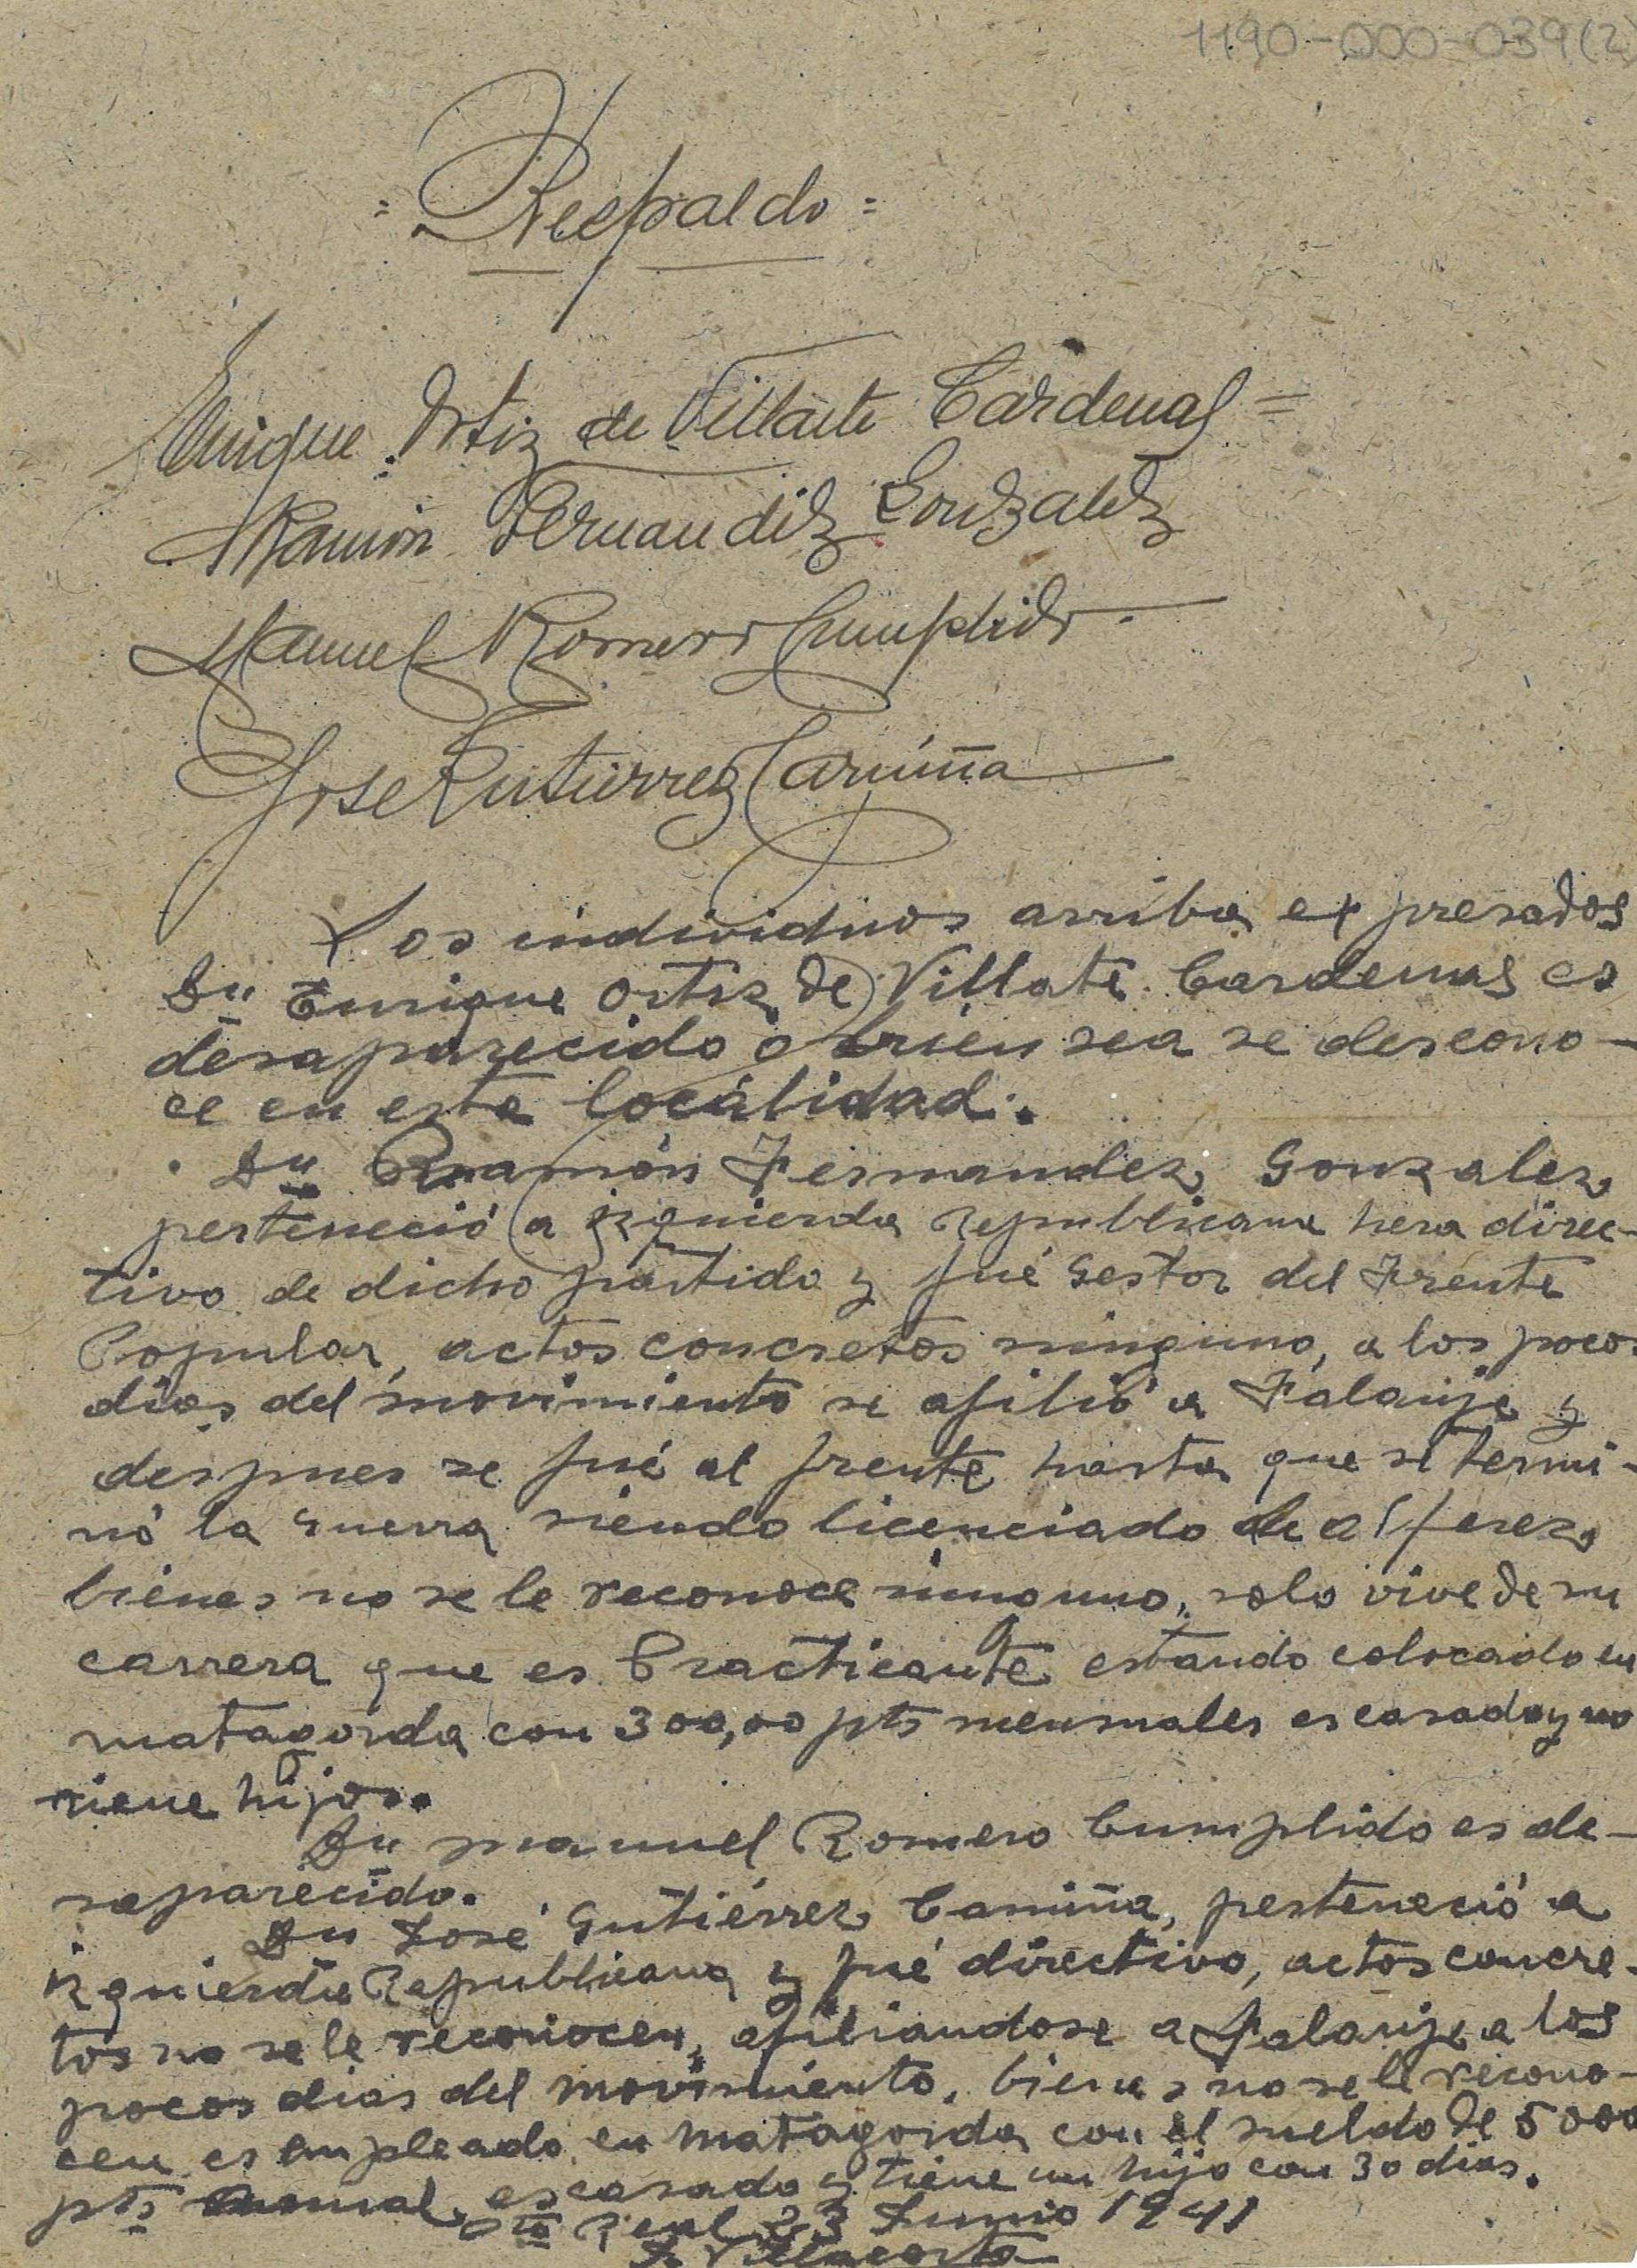 1190-000-039(2)
= Respaldo =
Enrique Ortiz de Villate Cardenas =
Ramón Fernandez Gonzalez
Manuel Romero Cumplido.
Jose Gutierrez Camiña
Los individuos arriba expresados
Dn Enrique Ortiz de Villate Cardenas es
desaparecido o bien sea se descono-
ce en esta localidad.
Dn Ramón Fernandez Gonzalez
perteneció a izquierda Republicana hera direc-
tivo de dicho partido y fué Gestor del Frente
Popular, actos concretos ninguno, a los pocos
dias del movimiento se afilió a Falanje y
despues se fué al frente hasta que se termi-
nó la guerra siendo licenciado de alferez
bienes no se le reconoce ninguno, solo vive de su
carrera que es Practicante estando colocado en
matagorda con 300,00 pts mensuales es casado y no
tiene hijos.
Dn Manuel Romero Cumplido es de-
saparecido.
Dn José Gutiérrez Camiña, perteneció a
izquierda Republicana y fué directivo, actos concre-
tos no se le reconocen, afiliandose a Falanje a los
pocos dias del movimiento, bienes no se le recono-
cen es empleado en Matagorda con el sueldo de 5000
pts anual, es casado y tiene un hijo con 30 dias.
Pto Real 23 Junio 1941